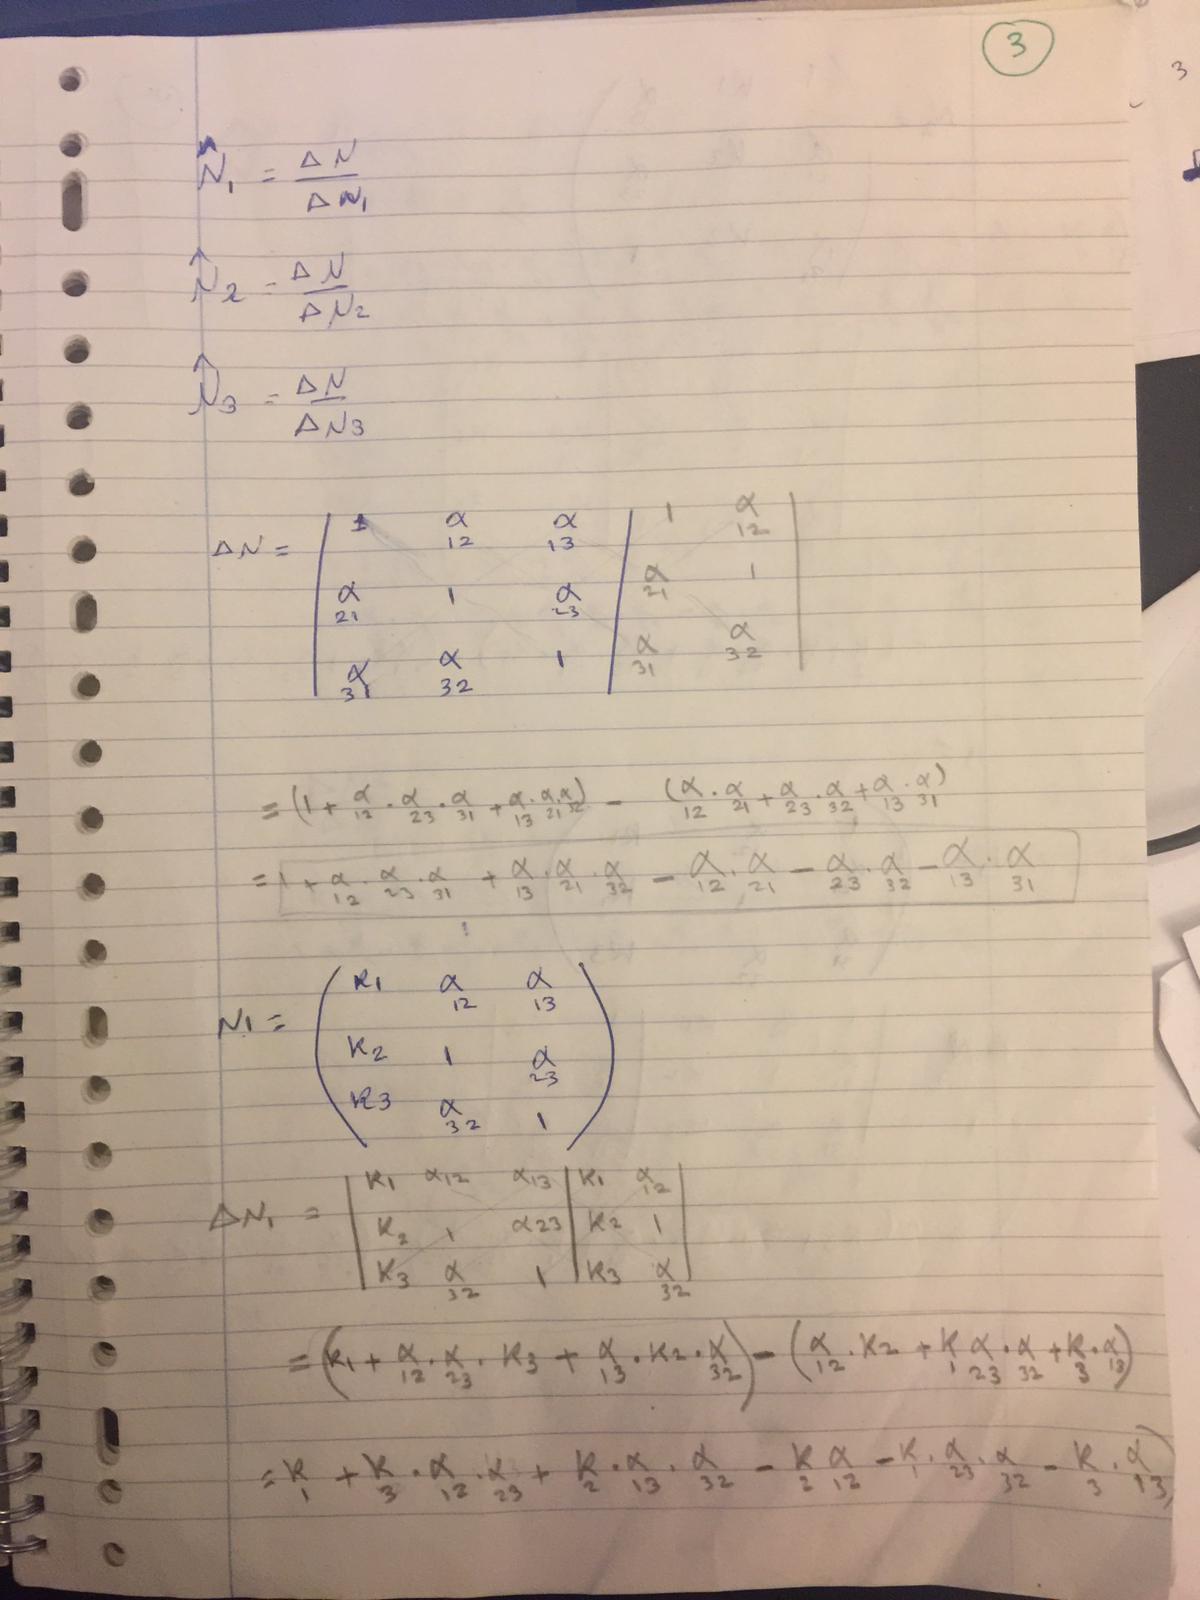 3
3
N̂₁ = ΔN / ΔN₁
N̂₂ = ΔN / ΔN₂
N̂₃ = ΔN / ΔN₃
ΔN = | 1 α₁₂ α₁₃ | 1 α₁₂ |
α₂₁ 1 α₂₃ | α₂₁ 1
α₃₁ α₃₂ 1 | α₃₁ α₃₂
= (1 + α₁₂ · α₂₃ · α₃₁ + α₁₃ · α₂₁ · α₃₂) − (α₁₂ · α₂₁ + α₂₃ · α₃₂ + α₁₃ · α₃₁)
= 1 + α₁₂ · α₂₃ · α₃₁ + α₁₃ · α₂₁ · α₃₂ − α₁₂ · α₂₁ − α₂₃ · α₃₂ − α₁₃ · α₃₁
N1 = ( K1 α₁₂ α₁₃ )
K2 1 α₂₃
K3 α₃₂ 1
ΔN₁ = | K1 α12 α13 | K1 α₁₂ |
K₂ 1 α23 | K2 1
K3 α₃₂ 1 | K3 α₃₂
= (K1 + α₁₂ · α₂₃ · K3 + α₁₃ · K2 · α₃₂) − (α₁₂ · K2 + K₁ α₂₃ · α₃₂ + K₃ · α₁₃)
= K₁ + K₃ · α₁₂ · α₂₃ + K₂ · α₁₃ · α₃₂ − K₂ α₁₂ − K₁ · α₂₃ · α₃₂ − K₃ · α₁₃)